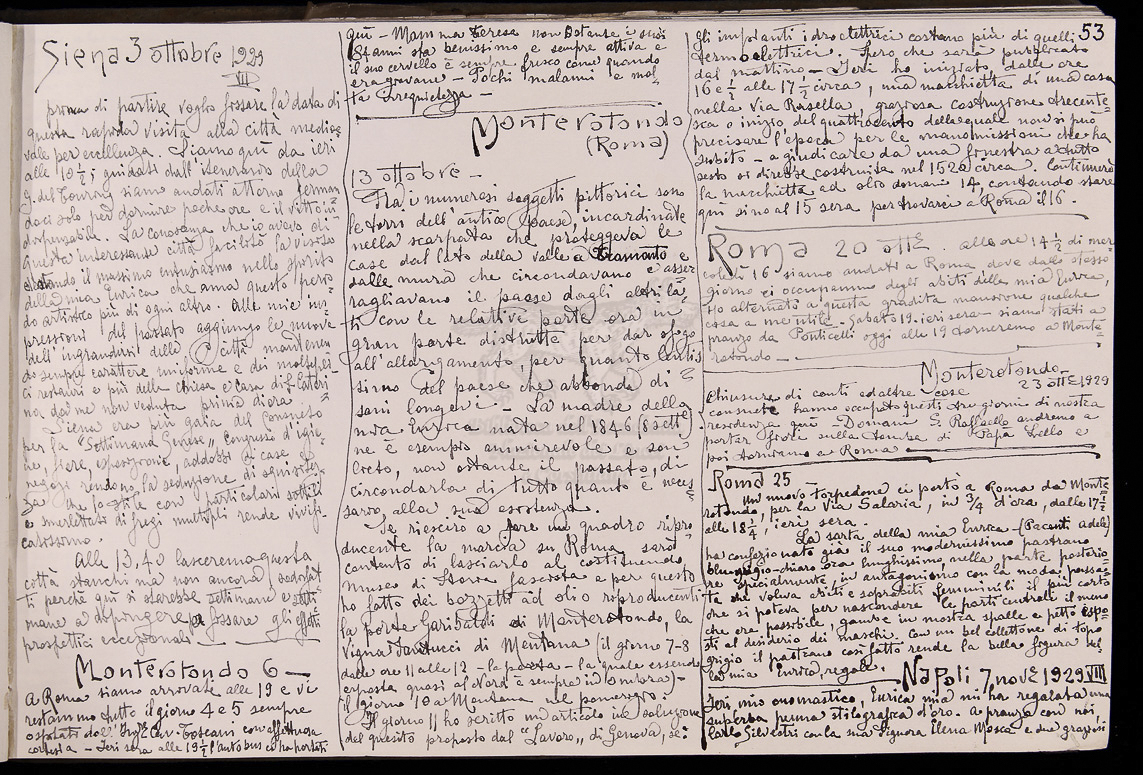 53
Siena 3 ottobre 1929
VII
prima di partire voglio fissare la data di
questa rapida visita alla città medioe=
vale per eccellenza. Siamo qui da ieri
alle 10½; guidati dall'itinerario della
g. del Touring siamo andati attorno ferman
doci solo per dormire poche ore e il vitto in
dispensabile. La conoscenza che io avevo di
questa interessante città facilitò la visita
destando il massimo entusiasmo nello spirito
della mia Enrica che ama questo perio
do artistico più di ogni altro. Alle mie im
pressioni del passato aggiungo le nuove
dell'ingrandirsi della città mantenen
do sempre carattere uniforme e dei molteplici
ci restauri e più della chiesa e casa di S. Cateri
na, da me non veduta prima d'ora.
Siena era più gaia del consueto
per la "Settimana Senese", Congresso d'igie
ne, fiere, esposizioni, addobbi di case e
negozi rendono la seduzione di squisitez
za che lo stile con particolari sottili
e smerlettati di fregi multipli rende vivifi
catissimo.
Alle 13,40 lasceremo questa
città stanchi ma non ancora soddisfat
ti perché qui si starebbe settimane e setti
mane a dipingere e fissare gli effetti
prospettici eccezionali
Monterotondo 6 —
A Roma siamo arrivati alle 19 e vi
restammo tutto il giorno 4 e 5 sempre
ospitati dall'Ing. Cav. Toscani con affettuosa
cortesia — Ieri sera alle 19½ l'autobus ci ha portati
qui — Mamma Teresa non ostante i suoi
84 anni sta benissimo e sempre attiva e
il suo cervello è sempre fresco come quando
era giovane — Pochi malanni e mol
ta irrequietezza —
Monterotondo
(Roma)
13 ottobre —
Fra i numerosi soggetti pittorici sono
le torri dell'antico paese, incardinate
nella scarpata che proteggeva le
case dal lato della valle a tramonto e
dalle mura che circondavano e asser
ragliavano il paese dagli altri la
ti con le relative porte ora in
gran parte distrutte per dar sfogo
all'allargamento, per quanto lentis
simo del paese che abbonda di
sani longevi — La madre della
mia Enrica nata nel 1846 (sett)
ne è esempio ammirevole e son
lieto, non ostante il passato, di
circondarla di tutto quanto è neces
sario, alla sua esistenza.
Se riescirò a fare un quadro ripro
ducente la marcia su Roma sarò
contento di lasciarlo al costituendo
museo di Storia fascista e per questo
ho fatto dei bozzetti ad olio riproducenti
la porta Garibaldi di Monterotondo, la
Vigna Santucci di Mentana (il giorno 7-8
dalle ore 11 alle 12 — la porta — la quale essendo
esposta quasi al Nord è sempre in ombra) —
il giorno 10 a Mentana nel pomeriggio.
Il giorno 11 ho scritto un articolo in soluzione
del quesito proposto dal "Lavoro", di Genova, se:
gli impianti idroelettrici costano più di quelli
termoelettrici. Spero che sarà pubblicato
dal mattino — Ieri ho iniziato dalle ore
16 e ½ alle 17½ circa, una macchietta di una casa
nella Via Rasella, graziosa costruzione trecente=
sca o inizio del quattrocento della quale non si può
precisare l'epoca per le manomissioni che ha
subito — a giudicare da una finestra a tutto
sesto si direbbe costruita nel 1520 circa. Continuerò
la macchietta ad olio domani 14, contando stare
qui sino al 15 sera per trovarci a Roma il 16.
Roma 20 ottᵉ. alle ore 14½ di mer
coledì 16 siamo andati a Roma dove dallo stesso
giorno ci occupammo degli abiti della mia Enrica,
ho alternato a questa gradita mansione qualche
cosa a me utile. Sabato 19 - ieri sera - siamo stati a
pranzo da Ponticelli oggi alle 19 torneremo a Monte
rotondo —
Monterotondo
23 ottᵉ 1929
Chiusura di conti ed altre cose
consuete hanno occupato questi tre giorni di nostra
residenza qui — Domani S. Raffaello andremo a
portar fiori sulla tomba di Papà Lello e
poi torniamo a Roma
Roma 25
Un nuovo torpedone ci portò a Roma da Monte=
rotondo, per la Via Salaria, in ¾ d'ora, dalle 17½
alle 18¼, ieri sera.
La sarta della mia Enrica — (Pacenti Adele)
ha confezionato già il suo modernissimo pastrano
bleu grigio-chiaro ora lunghissimo, nella parte posterio
re specialmente, in antagonismo con la moda passa=
ta che voleva abiti e soprabiti femminili il più corto
che si poteva per nascondere le parti centrali il meno
che era possibile, gambe in mostra spalle e petto espo=
sti al desiderio dei maschi. Con un bel collettone di topo
grigio il pastrano così fatto rende la bella figura del
la mia Enrica, regale.
Napoli 7 novᵉ 1929 VIII
Ieri mio onomastico, Enrica mia mi ha regalata una
superba penna stilografica d'oro. A pranzo con noi
Carlo Silvestri con la sua signora Elena Mosca e due graziosi